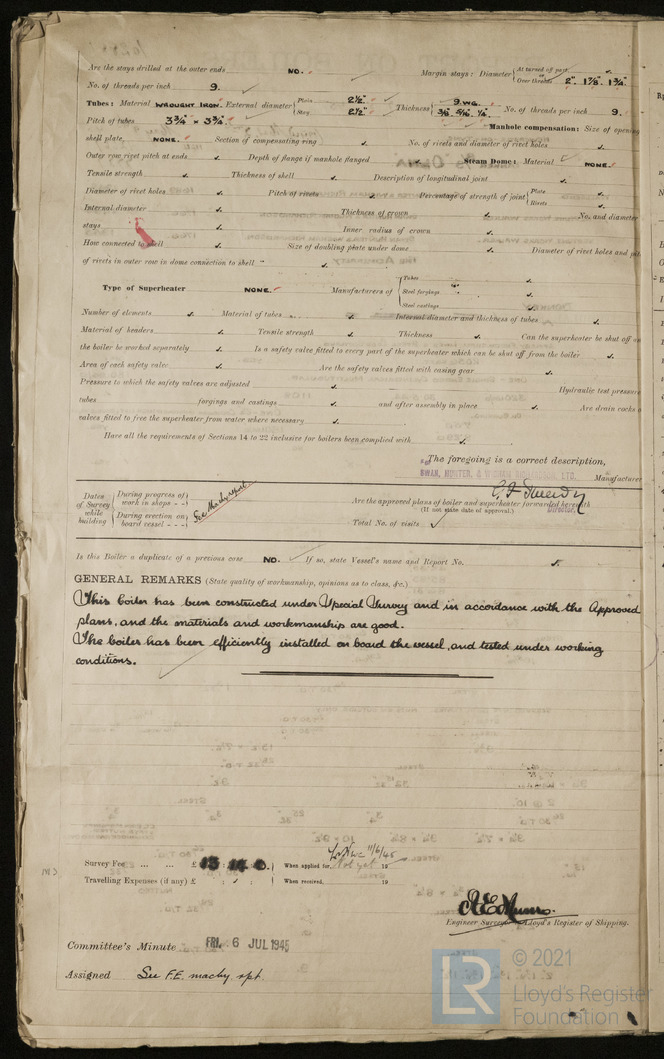 Are the stays drilled at the outer ends NO. Margin stays: Diameter { At turned off part, or Over threads 2" 1⅞" 1¾"
No. of threads per inch 9.
Tubes: Material WROUGHT IRON. External diameter { Plain 2½" Stay 2½" Thickness { 9 WG. 3/8 5/16 ¼" No. of threads per inch 9.
Pitch of tubes 3¾" × 3¾" Manhole compensation: Size of opening
shell plate NONE. Section of compensating ring ✓ No. of rivets and diameter of rivet holes ✓
Outer row rivet pitch at ends ✓ Depth of flange if manhole flanged Steam Dome: Material NONE.
Tensile strength ✓ Thickness of shell ✓ Description of longitudinal joint ✓
Diameter of rivet holes ✓ Pitch of rivets ✓ Percentage of strength of joint { Plate ✓ Rivets ✓
Internal diameter ✓ Thickness of crown ✓ No. and diameter
stays ✓ Inner radius of crown ✓
How connected to shell ✓ Size of doubling plate under dome ✓ Diameter of rivet holes and pit
of rivets in outer row in dome connection to shell ✓
Type of Superheater NONE. Manufacturers of { Tubes ✓ Steel forgings ✓ Steel castings ✓
Number of elements ✓ Material of tubes ✓ Internal diameter and thickness of tubes ✓
Material of headers ✓ Tensile strength ✓ Thickness ✓ Can the superheater be shut off an
the boiler be worked separately ✓ Is a safety valve fitted to every part of the superheater which can be shut off from the boiler ✓
Area of each safety valve ✓ Are the safety valves fitted with easing gear ✓
Pressure to which the safety valves are adjusted ✓ Hydraulic test pressure
tubes ✓ forgings and castings ✓ and after assembly in place ✓ Are drain cocks o
valves fitted to free the superheater from water where necessary ✓
Have all the requirements of Sections 14 to 22 inclusive for boilers been complied with ✓
The foregoing is a correct description,
SWAN, HUNTER, & WIGHAM RICHARDSON, LTD. Manufacturer
Director.
Dates of Survey while building { During progress of work in shops - - During erection on board vessel - - - See Machy rpt.
Are the approved plans of boiler and superheater forwarded herewith
(If not state date of approval.)
Total No. of visits ✓
Is this Boiler a duplicate of a previous case NO. If so, state Vessel's name and Report No. ✓
GENERAL REMARKS (State quality of workmanship, opinions as to class, &c.)
This boiler has been constructed under Special Survey and in accordance with the Approved
plans, and the materials and workmanship are good.
The boiler has been efficiently installed on board the vessel, and tested under working
conditions.
Survey Fee ... ... £ When applied for, 11/6/45 Not yet 19
Travelling Expenses (if any) £ : : When received, 19
Engineer Surveyor to Lloyd's Register of Shipping.
Committee's Minute FRI. 6 JUL 1945
Assigned See F.E. machy rpt.
LR
© 2021
Lloyd's Register
Foundation